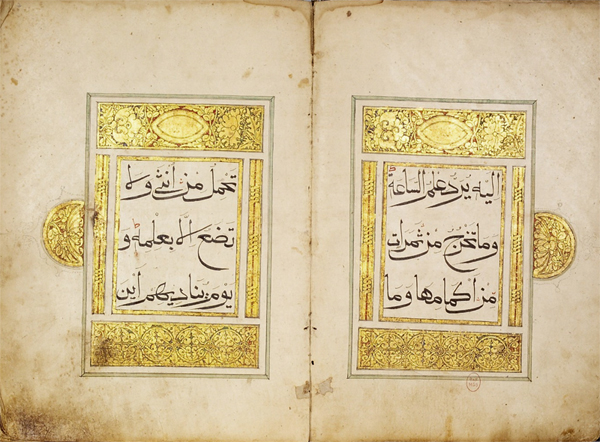 اليه يرد علم الساعة
وما تخرج من ثمرات
من اكمامها وما
تحمل من انثى ولا
تضع الا بعلمه و
يوم يناديهم اين